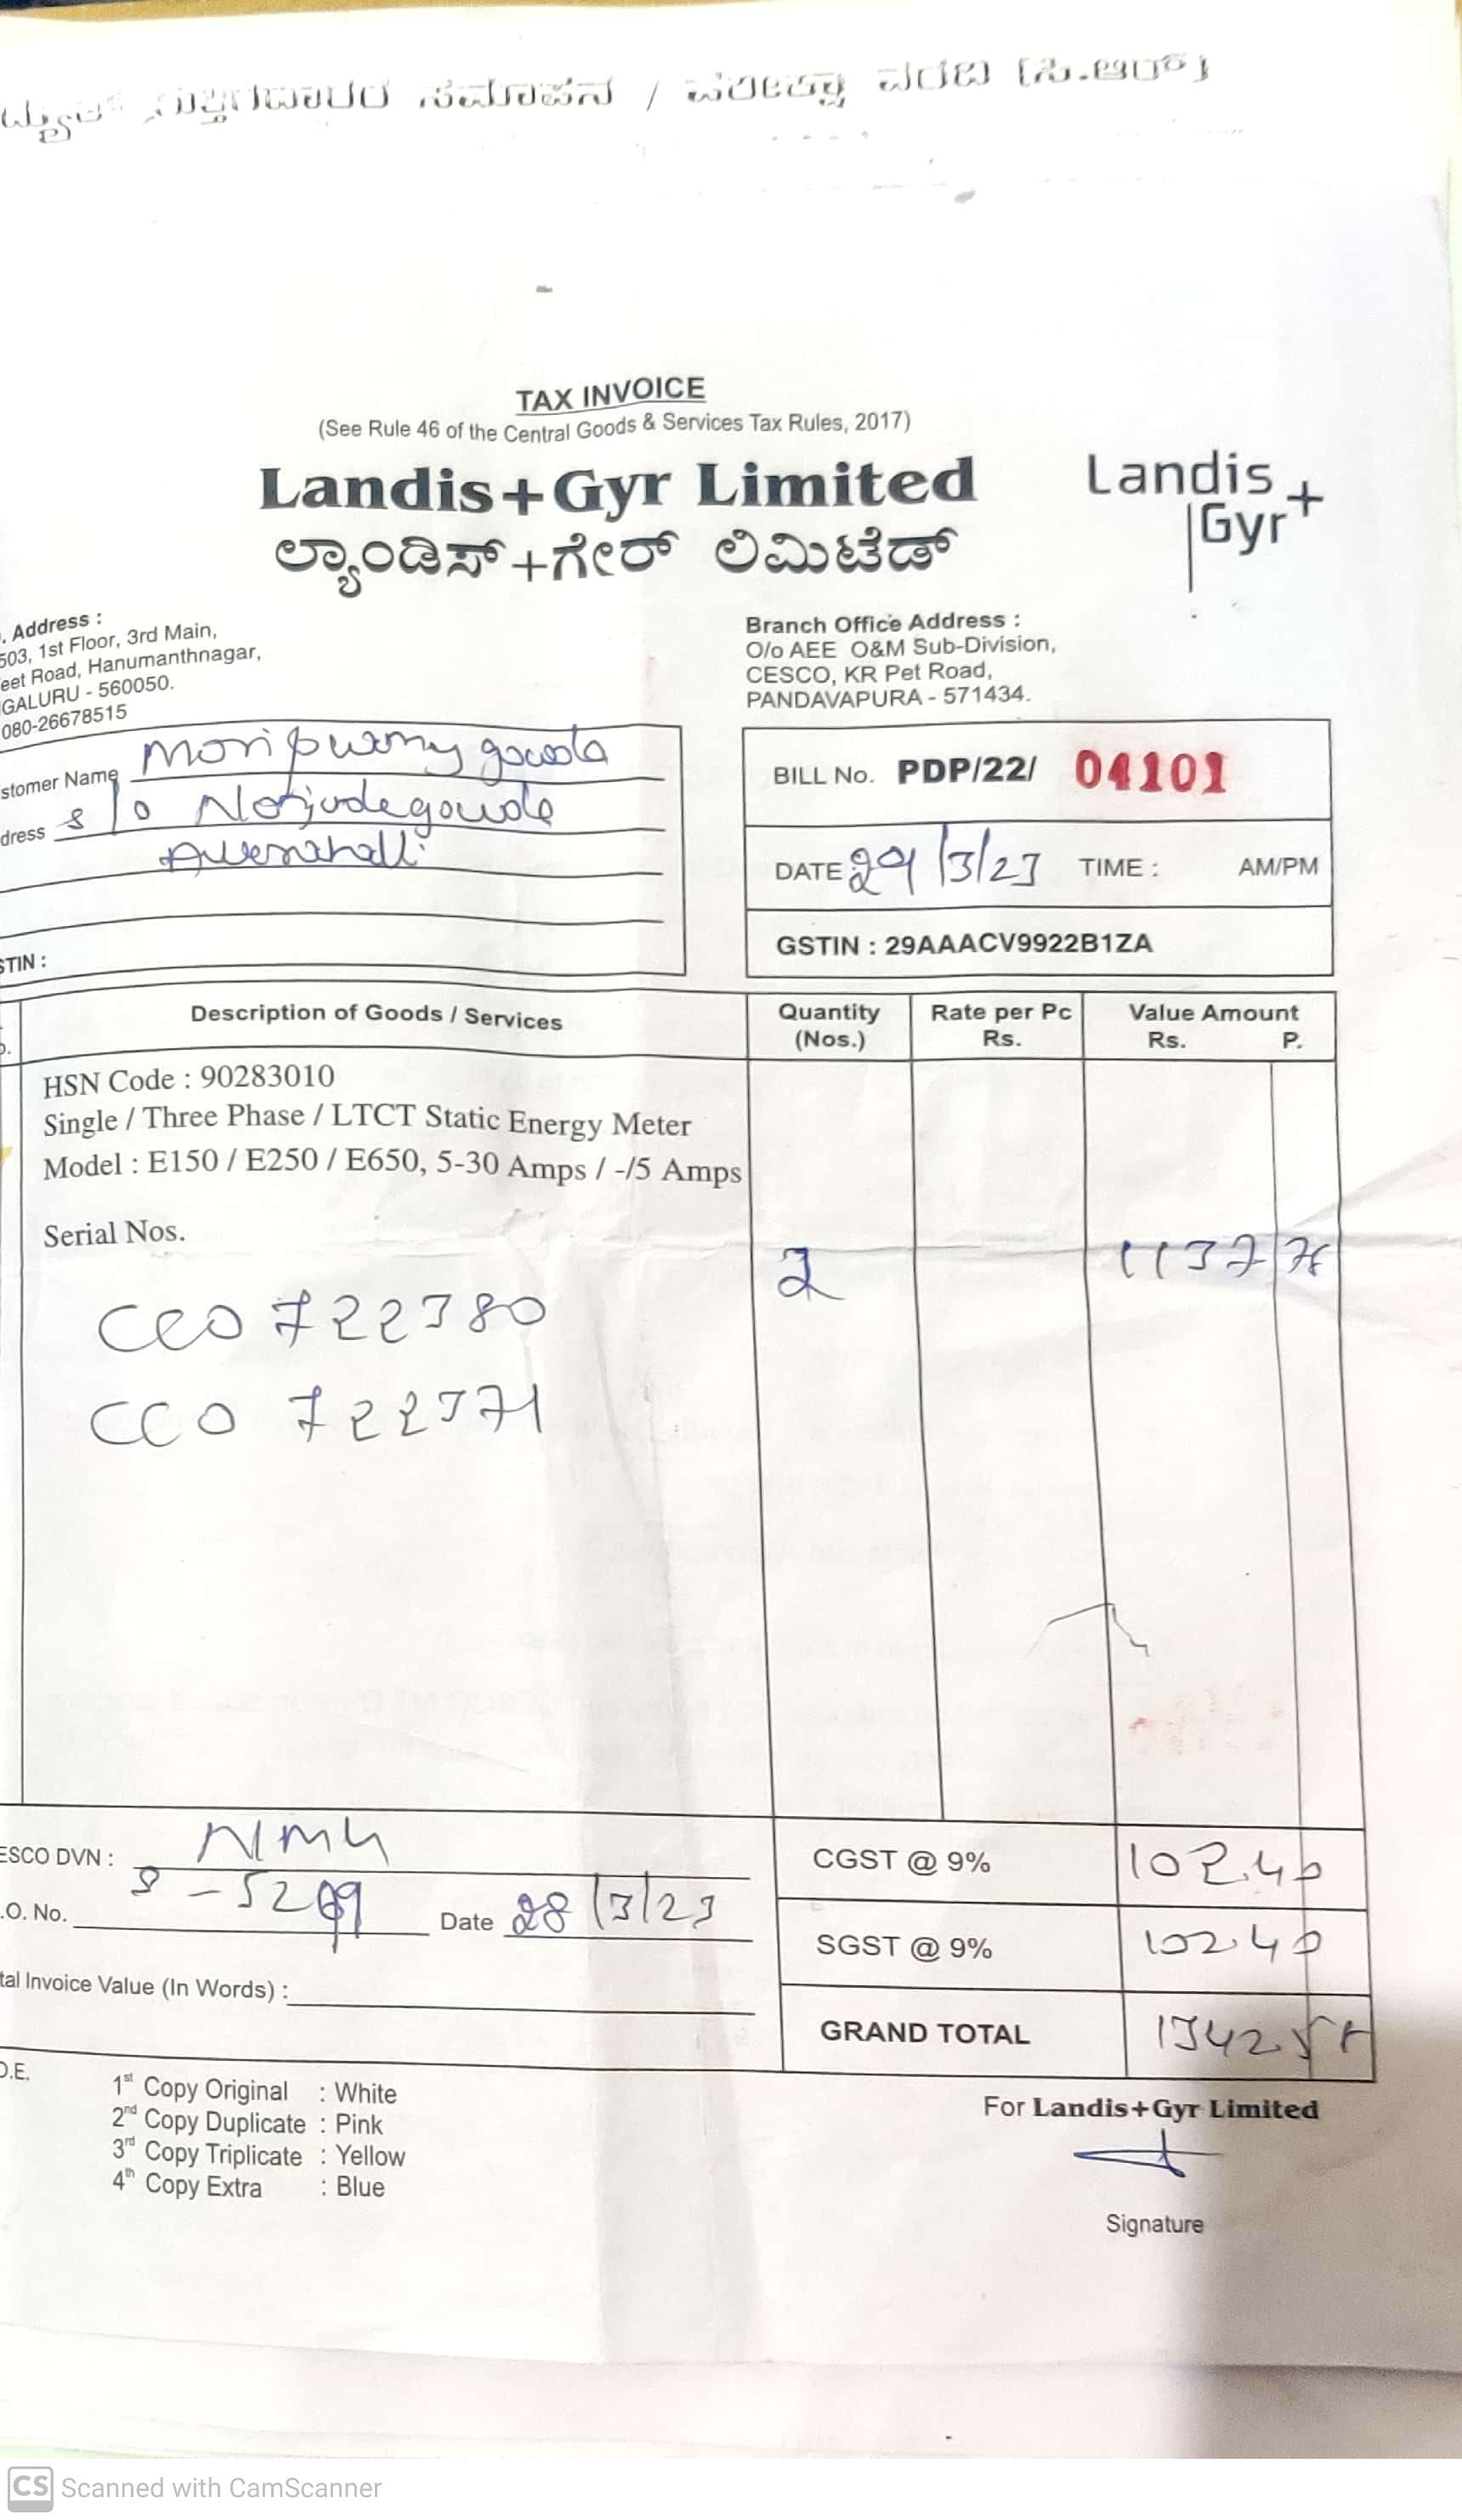 TAX INVOICE
(See Rule 46 of the Central Goods & Services Tax Rules, 2017)
Landis+Gyr Limited
ಲ್ಯಾಂಡಿಸ್+ಗೇರ್ ಲಿಮಿಟೆಡ್
Landis
Gyr+
. Address :
503, 1st Floor, 3rd Main,
eet Road, Hanumanthnagar,
GALURU - 560050.
080-26678515
Branch Office Address :
O/o AEE O&M Sub-Division,
CESCO, KR Pet Road,
PANDAVAPURA - 571434.
stomer Name
dress s/o
STIN :
BILL No. PDP/22/ 04101
DATE 29/3/23 TIME : AM/PM
GSTIN : 29AAACV9922B1ZA
Description of Goods / Services
Quantity
(Nos.)
Rate per Pc
Rs.
Value Amount
Rs. P.
HSN Code : 90283010
Single / Three Phase / LTCT Static Energy Meter
Model : E150 / E250 / E650, 5-30 Amps / -/5 Amps
Serial Nos.
2 1137 76
CCO 722380
CCO 722371
ESCO DVN :
.O. No. Date 28/3/23
tal Invoice Value (In Words) :
CGST @ 9% 102.40
SGST @ 9% 102.40
GRAND TOTAL 1342
O.E.
1st Copy Original : White
2nd Copy Duplicate : Pink
3rd Copy Triplicate : Yellow
4th Copy Extra : Blue
For Landis+Gyr Limited
Signature
CS Scanned with CamScanner